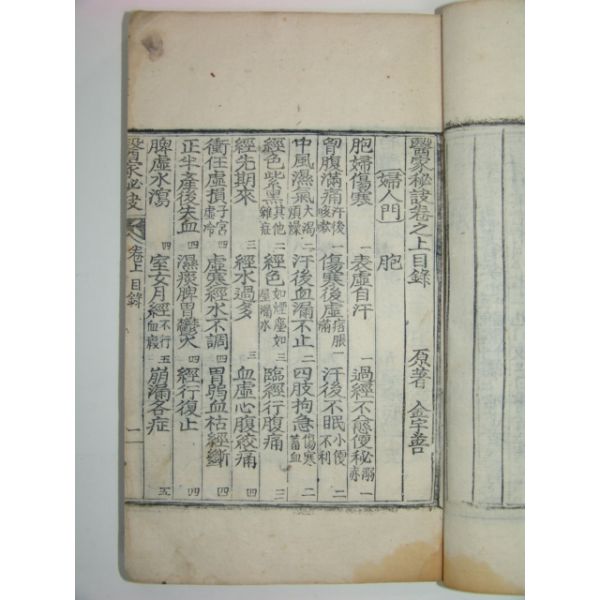 醫家秘訣卷之上目錄 原著 金宇善
婦人門 胞
胞婦傷寒 一 表虛自汗 一 過經不愈便秘溺赤 一
曾腹滿痛汗後咳嗽 一 傷寒後虛痞脹滿 一 汗後不眠小便不利 二
中風濕氣大渴煩燥 二 汗後血漏不止 二 四肢拘急傷寒蓄血 二
經色紫黑其他雜症 二 經色如烟塵如屋漏水 三 臨經行腹痛 三
經先期來 三 經水過多 三 血虛心腹絞痛 四
衝任虛損子宮虛冷 四 虛寒經水不調 四 胃弱血枯經斷 四
正半產後失血 四 濕痰脾胃鬱火 四 經行復止 四
脾虛水瀉 四 室女月經不行血瘕 五 崩漏各症 五
醫家秘訣 卷上 目錄 一